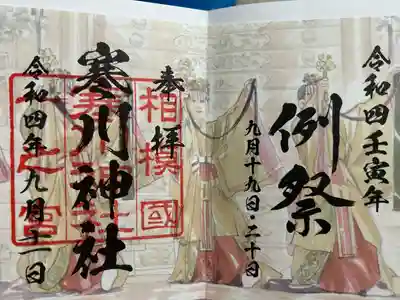 令和四壬寅年
例祭
九月十九日・二十日
奉拝
相模國
寒川神社
令和四年九月十一日